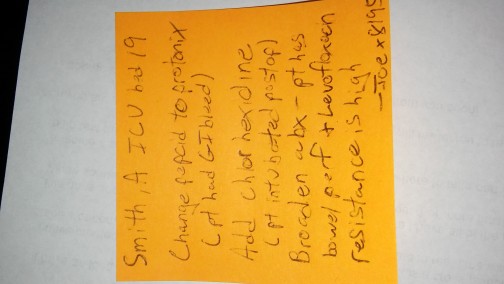 Smith, A ICU bed 19
Change pepcid to protonix
(pt had GI bleed)
Add chlorhexidine
(pt intubated postop)
Broaden abx - pt has
bowel perf + levofloxacin
resistance is high
- Joe x8195